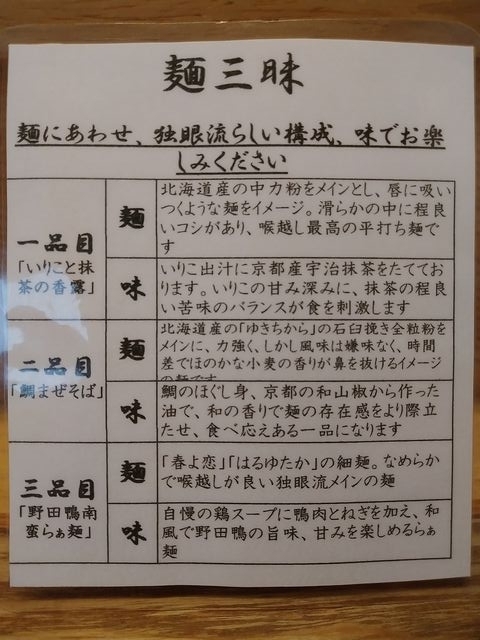 麺三昧
麺にあわせ、独眼流らしい構成、味でお楽
しみください
一品目
「いりこと抹
茶の香露」
麺
北海道産の中力粉をメインとし、唇に吸い
つくような麺をイメージ。滑らかの中に程良
いコシがあり、喉越し最高の平打ち麺で
す
味
いりこ出汁に京都産宇治抹茶をたてており
ります。いりこの甘み深みに、抹茶の程良
い苦味のバランスが食を刺激します
二品目
「鯛まぜそば」
麺
北海道産の「ゆきちから」の石臼挽き全粒粉を
メインに、力強く、しかし風味は嫌味なく、時間
差でほのかな小麦の香りが鼻を抜けるイメージ
の麺です
味
鯛のほぐし身、京都の和山椒から作った
油で、和の香りで麺の存在感をより際立
たせ、食べ応えある一品になります
三品目
「野田鴨南
蛮らぁ麺」
麺
「春よ恋」「はるゆたか」の細麺。なめらか
で喉越しが良い独眼流メインの麺
味
自慢の鶏スープに鴨肉とねぎを加え、和
風で野田鴨の旨味、甘みを楽しめるらぁ
麺